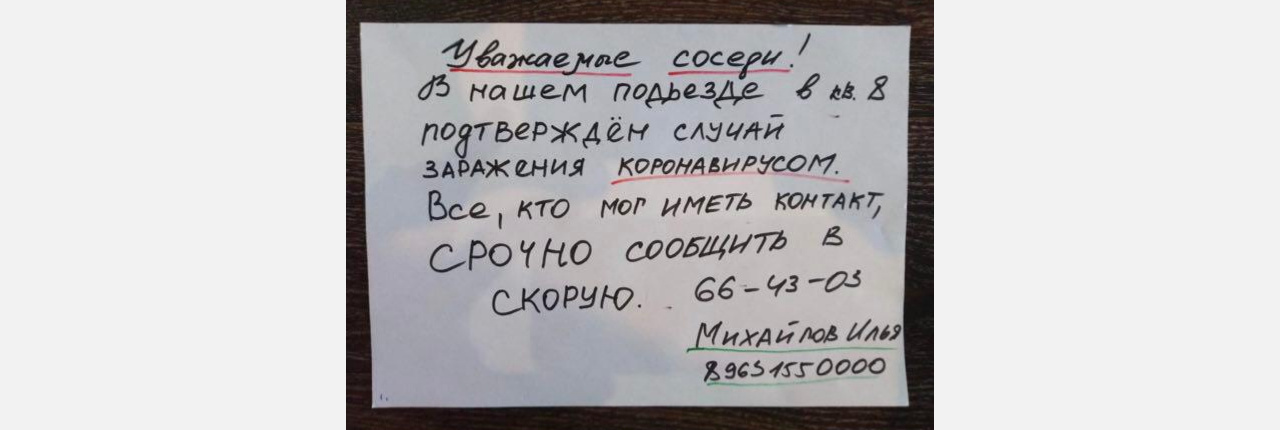 Уважаемые соседи!
В нашем подьезде в кв. 8
подтверждён случай
заражения коронавирусом.
Все, кто мог иметь контакт,
срочно сообщить в
скорую. 66-43-03
Михайлов Илья
89631550000